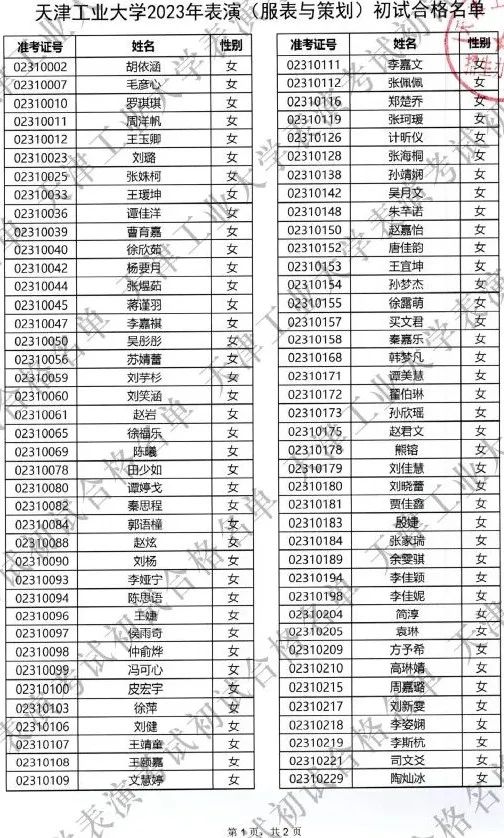 天津工业大学2023年表演（服表与策划）初试合格名单
准考证号 姓名 性别
02310002 胡依涵 女
02310007 毛彦心 女
02310010 罗琪琪 女
02310011 周洋帆 女
02310012 王玉卿 女
02310023 刘璐 女
02310025 张姝柯 女
02310033 王瑷坤 女
02310036 谭佳洋 女
02310039 曹育嘉 女
02310040 徐欣茹 女
02310042 杨要月 女
02310044 张煜茹 女
02310045 蒋谨羽 女
02310047 李嘉祺 女
02310050 吴彤彤 女
02310056 苏婧蕾 女
02310059 刘芋杉 女
02310060 刘笑涵 女
02310061 赵岩 女
02310065 徐福乐 女
02310069 陈曦 女
02310078 田少如 女
02310080 谭婷戈 女
02310082 秦思程 女
02310084 郭语橦 女
02310088 赵炫 女
02310090 刘杨 女
02310093 李娅宁 女
02310094 陈思语 女
02310096 王婕 女
02310097 侯雨奇 女
02310098 仲俞烨 女
02310099 冯可心 女
02310100 皮宏宇 女
02310103 徐萍 女
02310106 刘健 女
02310107 王靖童 女
02310108 王颐嘉 女
02310109 文慧婷 女
准考证号 姓名 性别
02310111 李嘉文 女
02310112 张佩佩 女
02310116 郑楚乔 女
02310119 张珂瑗 女
02310126 计昕仪 女
02310128 张海桐 女
02310138 孙靖娴 女
02310142 吴月文 女
02310148 朱芊诺 女
02310150 赵嘉怡 女
02310152 唐佳韵 女
02310153 王宜坤 女
02310154 孙梦杰 女
02310155 徐露萌 女
02310157 买文君 女
02310158 秦嘉乐 女
02310168 韩梦凡 女
02310171 谭美慧 女
02310172 翟伯琳 女
02310173 孙欣瑶 女
02310175 赵君文 女
02310178 熊镕 女
02310179 刘佳慧 女
02310180 刘晓蕾 女
02310181 贾佳鑫 女
02310183 殷婕 女
02310184 张家瑞 女
02310189 余雯骐 女
02310194 李佳颖 女
02310198 李佳妮 女
02310204 简淳 女
02310205 袁琳 女
02310209 方予希 女
02310210 高琳婧 女
02310215 周嘉璐 女
02310217 刘新雯 女
02310218 李姿娴 女
02310219 李斯杭 女
02310221 司文爻 女
02310229 陶灿冰 女
第 1 页，共 2 页